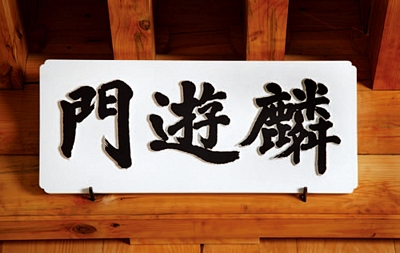 麟遊門